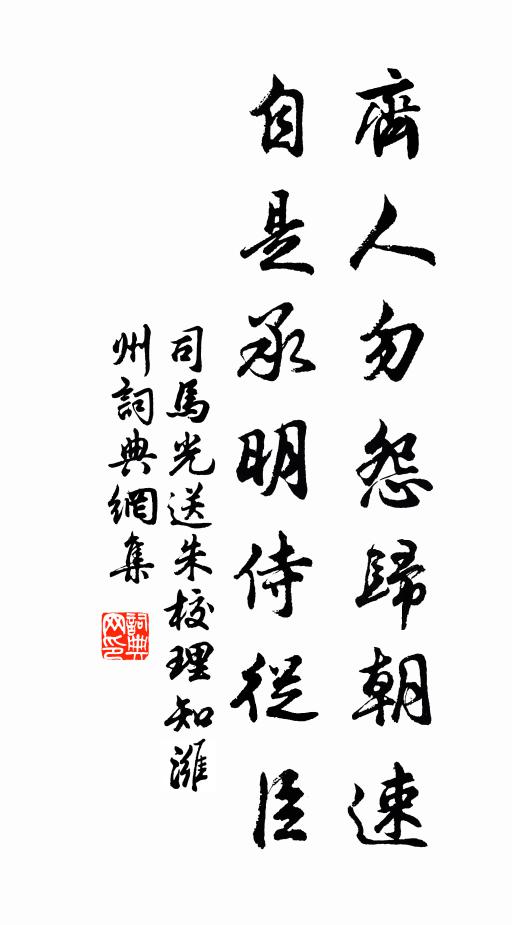 齊人勿怨歸朝速
自是承明侍從臣
司馬光送朱校理知濰
州詞典網集
詞典网印